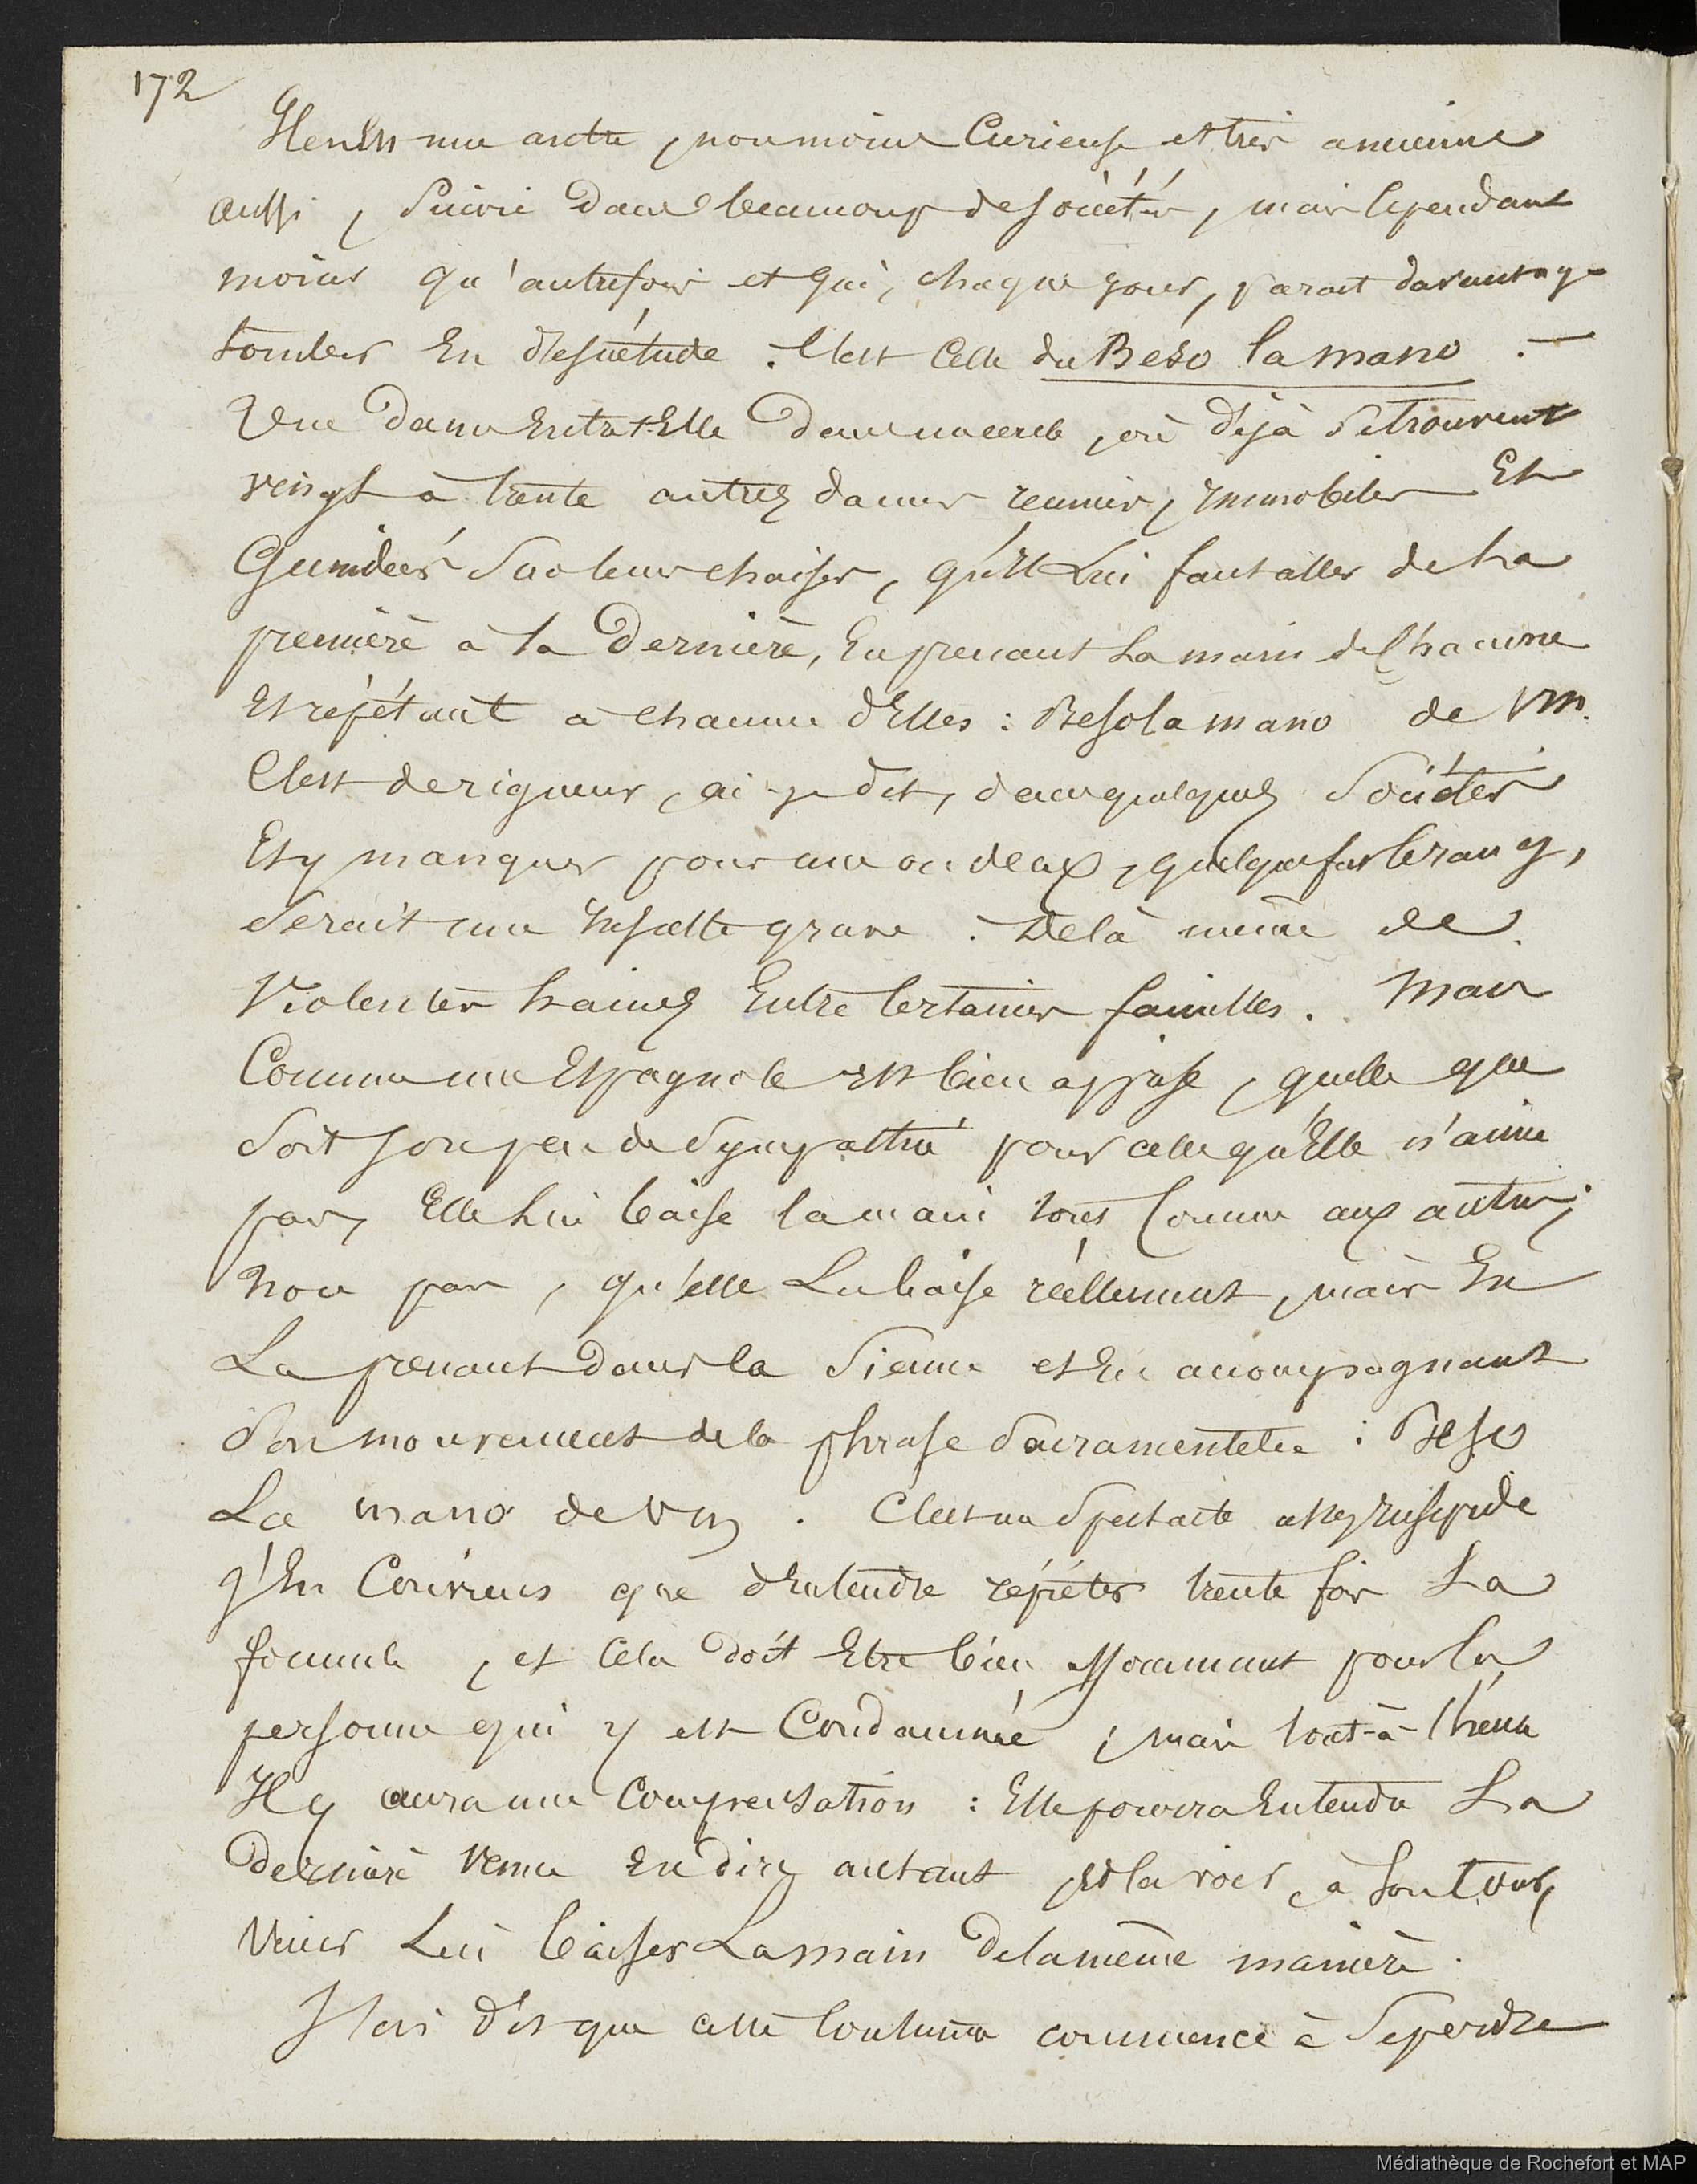 172
Il en est une autre, non moins Curieuse et très ancienne
aussi, Suivie Dans beaucoup de sociétés, mais Cependant
moins qu'autrefois et qui, chaque jour, parait davantage
tomber En désuétude. C'est Celle du Béso la mano. —
Une Dame Entret-Elle Dans un cercle, où Déjà Se trouvent
vingt à trente autres dames reunies, Immobiles Et
Guindées Sur leurs chaises, qu'Il Lui faut aller de La
première à la Dernière, En prenant La main de Chacune
Et répétant à Chacune d'Elles : Beso la mano de Vm.
C'est de rigueur, ai-je dit, dans quelques Sociétés
Et y manquer pour une ou deux, quelque fut le rang,
Serait une Insulte grave. De là même de
Violentes haines Entre Certaines familles. Mais
Comme une Espagnole Est bien apprise, quelle que
Soit son peu de Sympathie pour celle qu'Elle n'aime
pas, Elle Lui baise la main tout Comme aux autres;
Non pas, qu'elle La baise réellement, mais En
La prenant dans la Sienne et En accompagnant
Son mouvement de la phrase Sacramentelle : Beso
La mano de Vm. C'est un Spectacle assez Insipide
J'En Conviens que d'Entendre répéter trente fois La
formule, et Cela doit Etre bien assommant pour la
personne qui y est Condamnée, mais tout-à-l'heure
Il y aura une Compensation : Elle pourra Entendre La
Dernière Venue En dire autant, Et la voir, à Son tour,
Venir Lui baiser La main De la même manière.
J'ai Dit que cette Coutume commence à Se perdre
Médiathèque de Rochefort et MAP